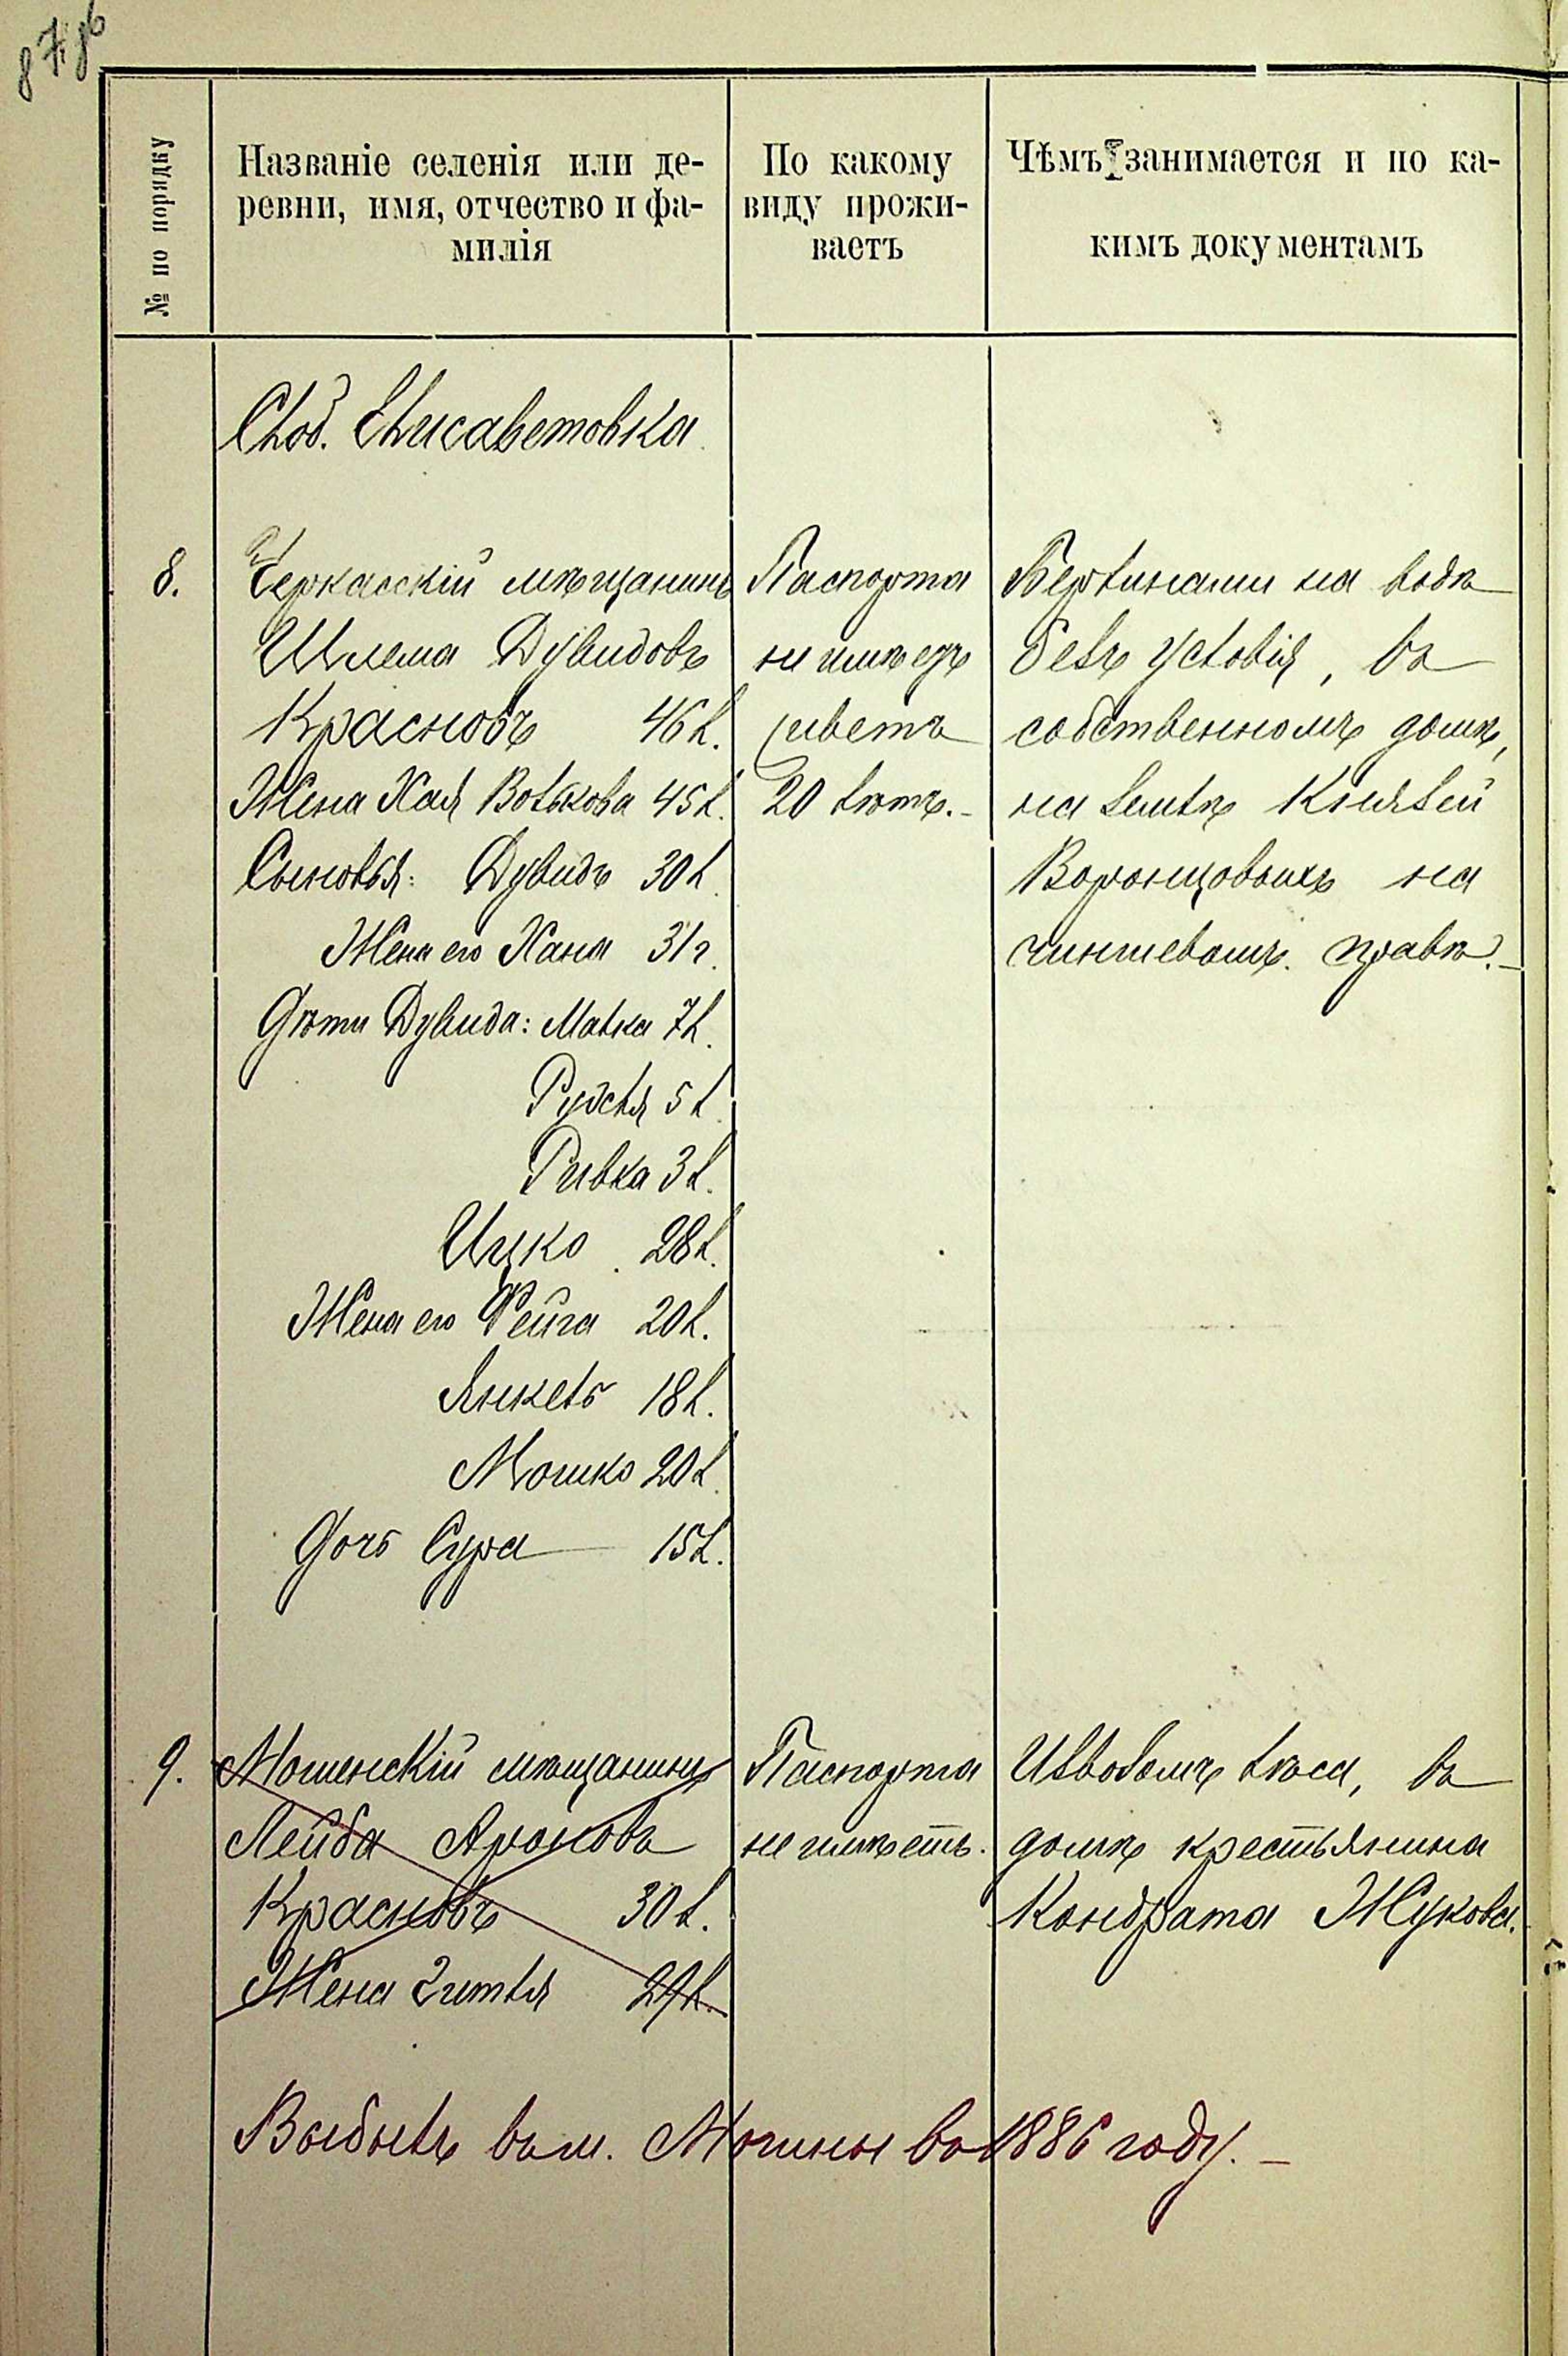 № по порядку
Названіе селенія или де-
ревни, имя, отчество и фа-
милія
По какому
виду прожи-
ваетъ
Чѣмъ занимается и по ка-
кимъ документамъ
Слоб. Елисаветовка
8.
Черкасскій мѣщанинъ
Шлема Дувидовъ
Красновъ 46 л.
Жена Хая Волькова 45 л.
Сыновья: Дувидъ 30 л.
Жена его Хана 31 г.
Дѣти Дувида: Малка 7 л.
Рухля 5 л.
Ривка 3 л.
Ицко 28 л.
Жена его Фейга 20 л.
Янкель 18 л.
Мошко 20 л.
Дочь Сура 15 л.
Паспорта
не имѣетъ
живетъ
20 лѣтъ.-
Берлинами на водѣ
безъ условія, въ
собственномъ домѣ,
на землѣ Князей
Воронцовыхъ на
чиншевомъ правѣ.-
9.
Мошенскій мѣщанинъ
Лейба Ароновъ
Красновъ 30 л.
Жена Зитля 29 л.
Паспорта
не имѣетъ.
Изводомъ лѣса, въ
домѣ крестьянина
Кондрата Жукова.
Выбылъ въ м. Мошны въ 1886 году.-